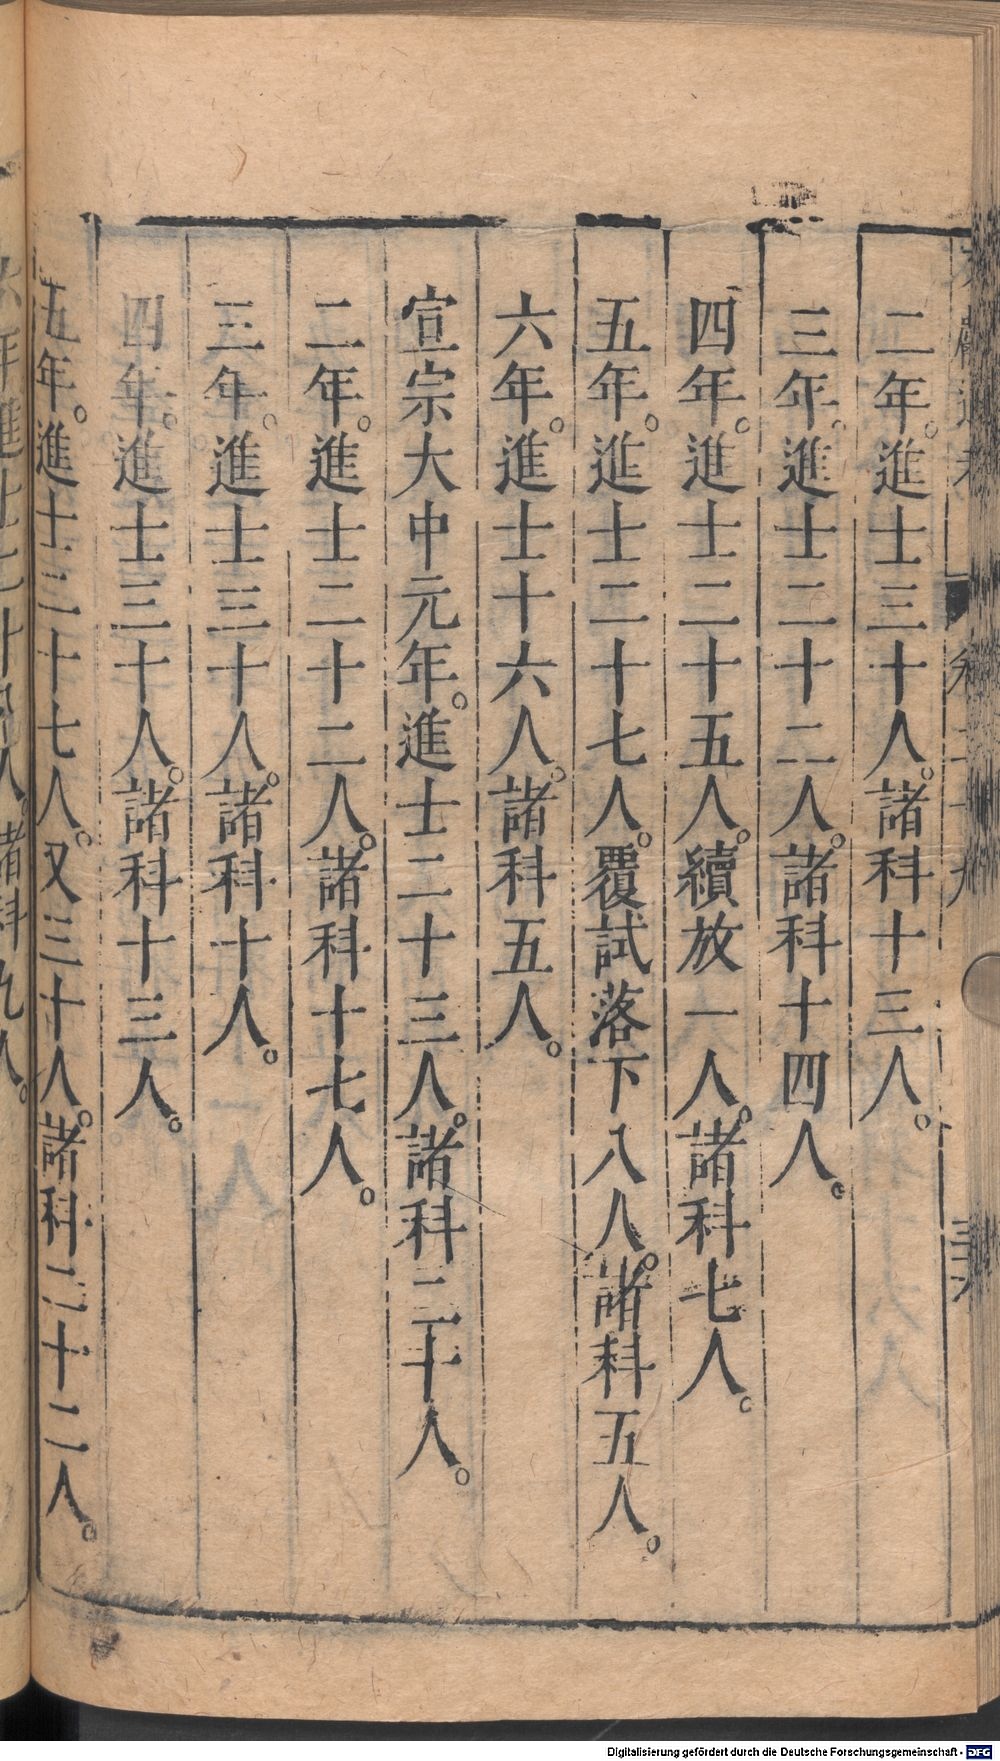 二年。進士三十人。諸科十三人。
三年。進士二十二人。諸科十四人。
四年。進士二十五人。續放一人。諸科七人。
五年。進士二十七人。覆試落下八人。諸科五人。
六年。進士十六人。諸科五人。
宣宗大中元年。進士二十三人。諸科二十人。
二年。進士二十二人。諸科十七人。
三年。進士三十人。諸科十人。
四年。進士三十人。諸科十三人。
五年。進士二十七人。又三十人。諸科二十二人。
人。諸科九人。
Digitalisierung gefördert durch die Deutsche Forschungsgemeinschaft - DFG